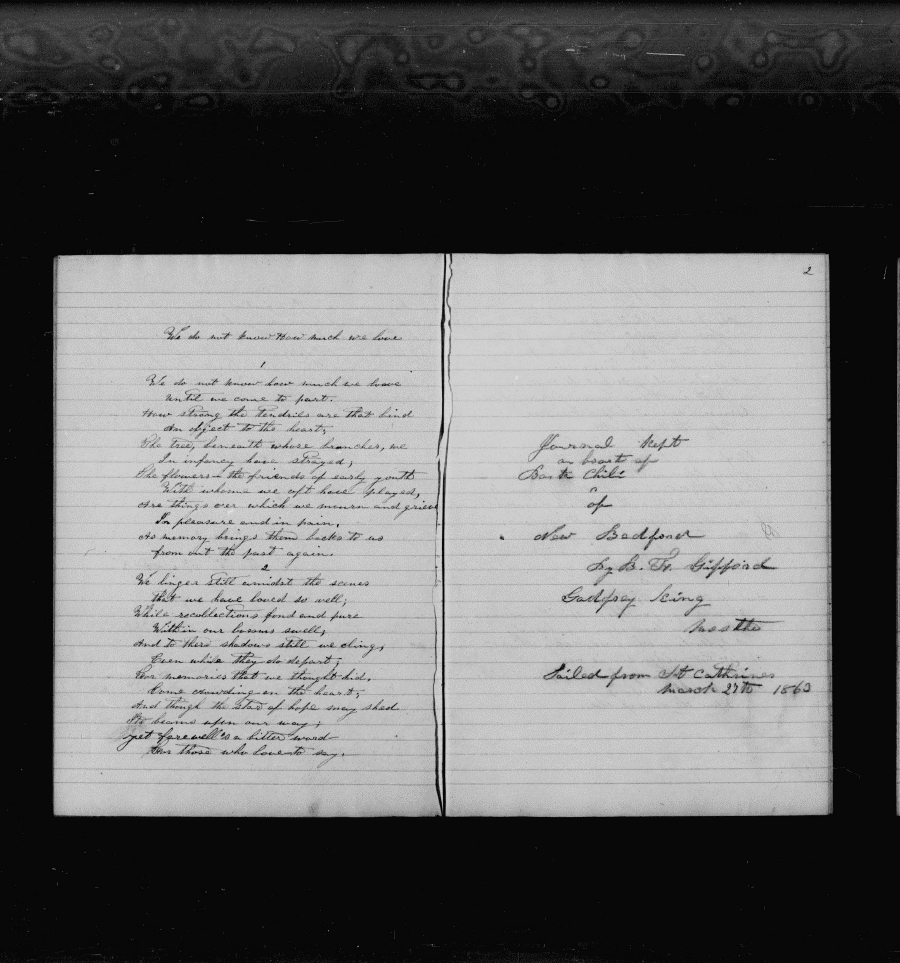 We do not know How much we love
1
We do not know how much we love
Until we come to part.
How strong the tendrils are that bind
An object to the heart;
The tree, beneath whose branches, we
In infancy have strayed;
The flowers – the friends of early youth
With whome we oft have played,
Are things over which we mourn and grieve
In pleasure and in pain,
As memory brings them backe to us
from out the past again.
2
We linger still amidst the scenes
that we have loved so well;
While recollections fond and pure
Within our bosoms swell,
And to there shadows still we cling,
Even while they do depart;
For memories that we thought did,
Come crowding on the heart;
And though the Star of hope may shed
Its beams upon our way;
yet farewell is a bitter word
For those who love to say.
2
Journal Kept
on board of
Bark Chili
of
New Bedford
by B. F. Gifford
Godfrey King
Master
Sailed from St Cathrines
March 27th 1863